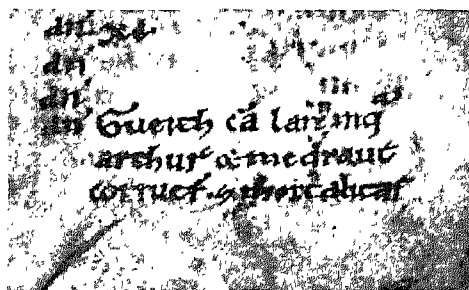 an̄
an̄
an̄
an̄ Gueith cā lann inq
arthur & medraut
corruer̄ & mortalitas